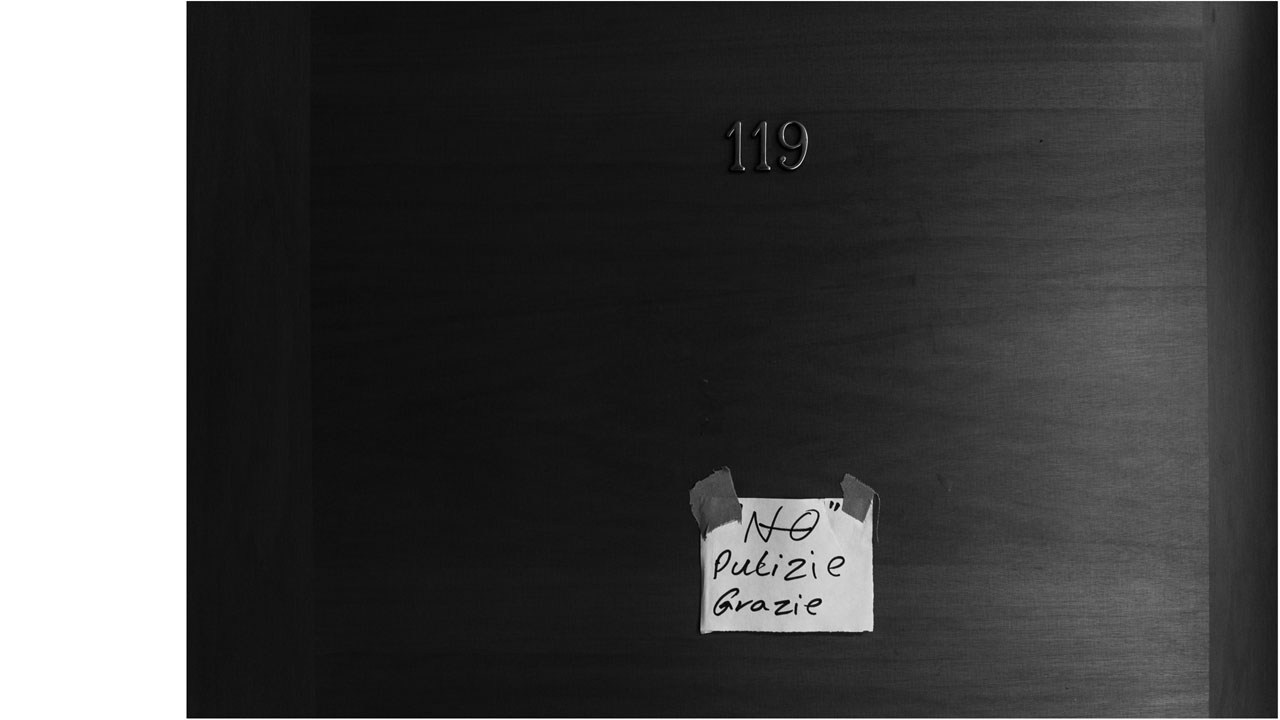 119
"NO"
Pulizie
Grazie